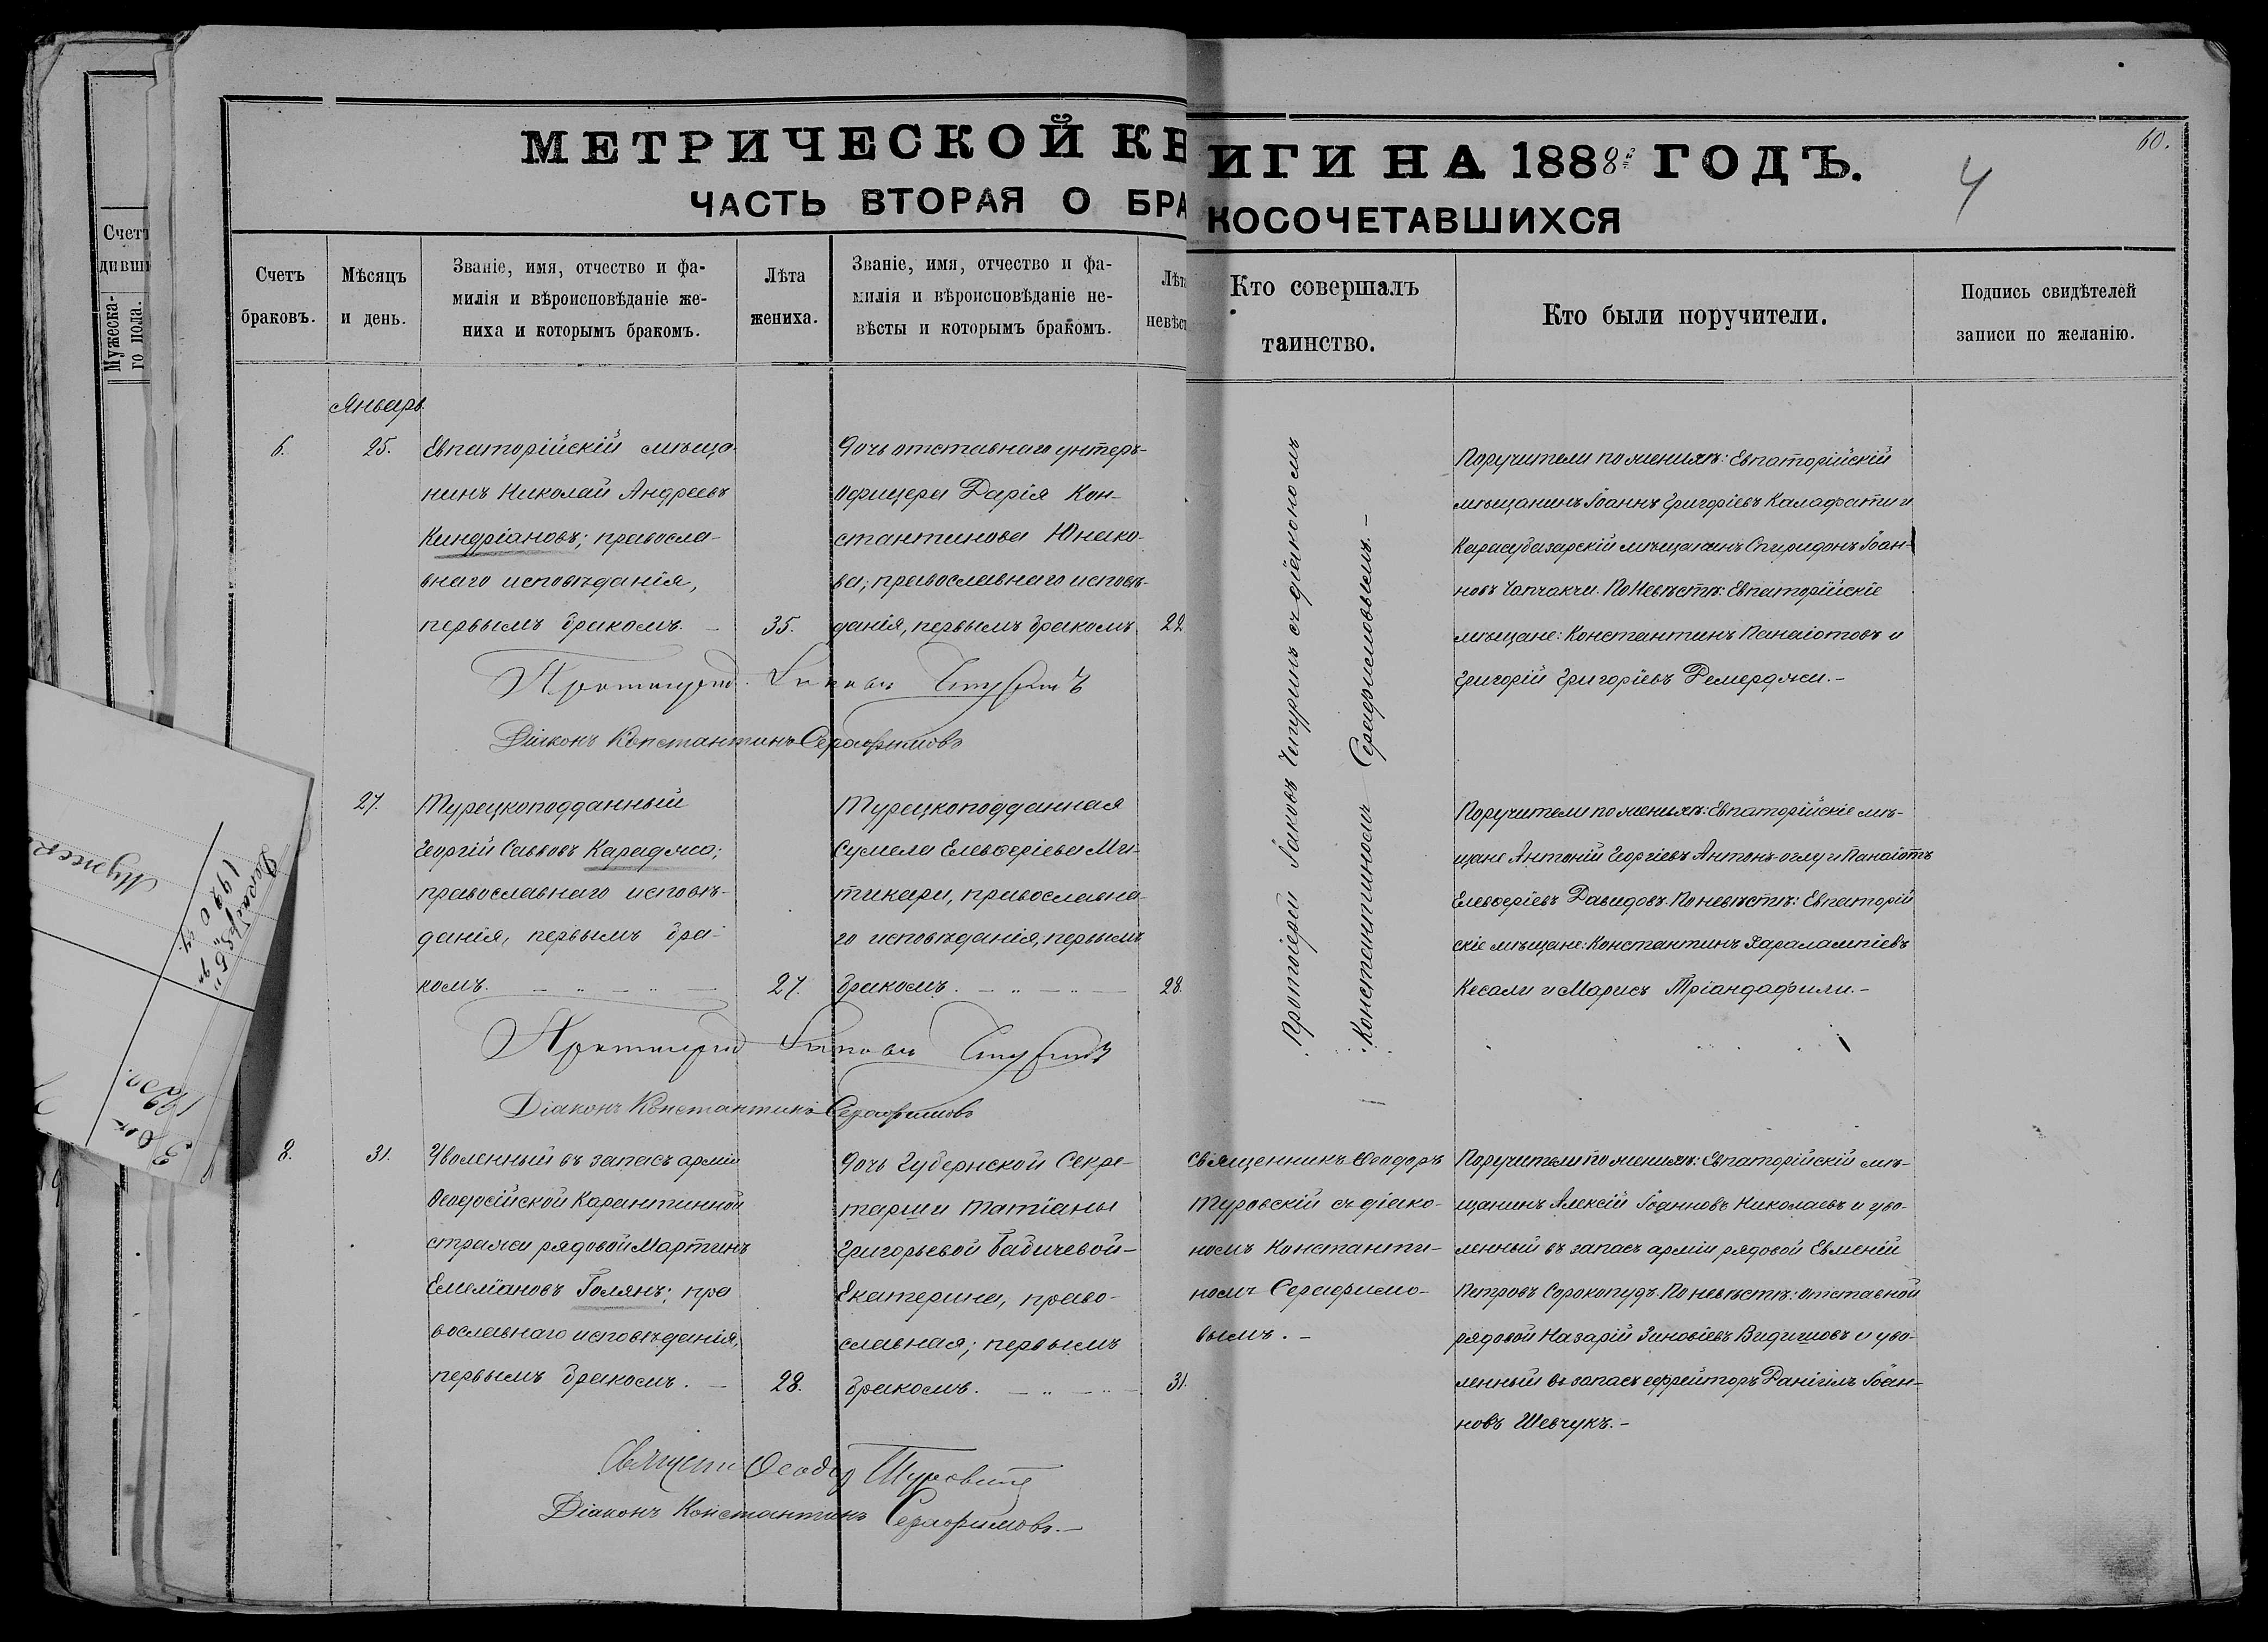 МЕТРИЧЕСКОЙ КНИГИ НА 1888й ГОДЪ.
60.
4
ЧАСТЬ ВТОРАЯ О БРАКОСОЧЕТАВШИХСЯ
Счетъ
браковъ.
Мѣсяцъ
и день.
Званіе, имя, отчество и фа-
милія и вѣроисповѣданіе же-
ниха и которымъ бракомъ.
Лѣта
жениха.
Званіе, имя, отчество и фа-
милія и вѣроисповѣданіе не-
вѣсты и которымъ бракомъ.
Лѣта
невѣст
Кто совершалъ
таинство.
Кто были поручители.
Подпись свидѣтелей
записи по желанію.
Счетъ
дивши
Мужеска-
го пола.
Январь.
6.
25.
Евпаторійскій мѣща-
нинъ Николай Андреевъ
Киндріановъ; правосла-
внаго исповѣданія,
первымъ бракомъ. —
35.
Дочь отставнаго унтеръ-
офицера Дарія Кон-
стантинова Юнако-
ва, православнаго исповѣ-
данія, первымъ бракомъ
22
Протоіерей Іаковъ Чепуринъ съ діакономъ
Константиномъ Серафимовымъ. —
Поручители по женихѣ: Евпаторійскій
мѣщанинъ Іоаннъ Григоріевъ Калафати и
Карасубазарскій мѣщанинъ Спиридонъ Іоан-
новъ Чапчакчи. По Невѣстѣ: Евпаторійскіе
мѣщане: Константинъ Панаіотовъ и
Григорій Григоріевъ Демерджи. —
Протоиерей Іаковъ Чепуринъ
Діаконъ Константинъ Серафимовъ
27.
Турецкоподданный
Георгій Саввовъ Караджа;
православнаго исповѣ-
данія, первымъ бра-
комъ. —
27.
Турецкоподданная
Сумела Елевѳеріева Ми-
тикари, православна-
го исповѣданія, первымъ
бракомъ. —
28.
Поручители по женихѣ: Евпаторійскіе мѣ-
щане Антоній Георгіевъ Антонъ-оглу и Панаіотъ
Елевѳеріевъ Давидовъ. По невѣстѣ: Евпаторій
скіе мѣщане: Константинъ Харалампіевъ
Кесали и Марисъ Тріандафили. —
Протоиерей Іаковъ Чепуринъ
Діаконъ Константинъ Серафимовъ
8.
31.
Уволенный въ запасъ арміи
Ѳеодосійской Карантинной
стражи рядовой Мартинъ
Емеліановъ Голянъ; пра
вославнаго исповѣданія,
первымъ бракомъ. —
28.
Дочь Губернской Секре-
тарши Татіаны
Григорьевой Бабичевой —
Екатерина, право-
славная; первымъ
бракомъ. —
31.
Священникъ Ѳеодоръ
Туровскій съ діако-
номъ Константи-
номъ Серафимо-
вымъ. —
Поручители по женихѣ: Евпаторійскій мѣ-
щанинъ Алексій Іоанновъ Николаевъ и уво-
ленный въ запасъ арміи рядовой Евменій
Петровъ Сорокопудъ. По невѣстѣ: отставной
рядовой Назарій Зиновіевъ Видишовъ и уво-
ленный въ запасъ ефрейторъ Даніилъ Іоан-
новъ Шевчукъ. —
Ѳеодоръ Туровскій
Діаконъ Константинъ Серафимовъ. —